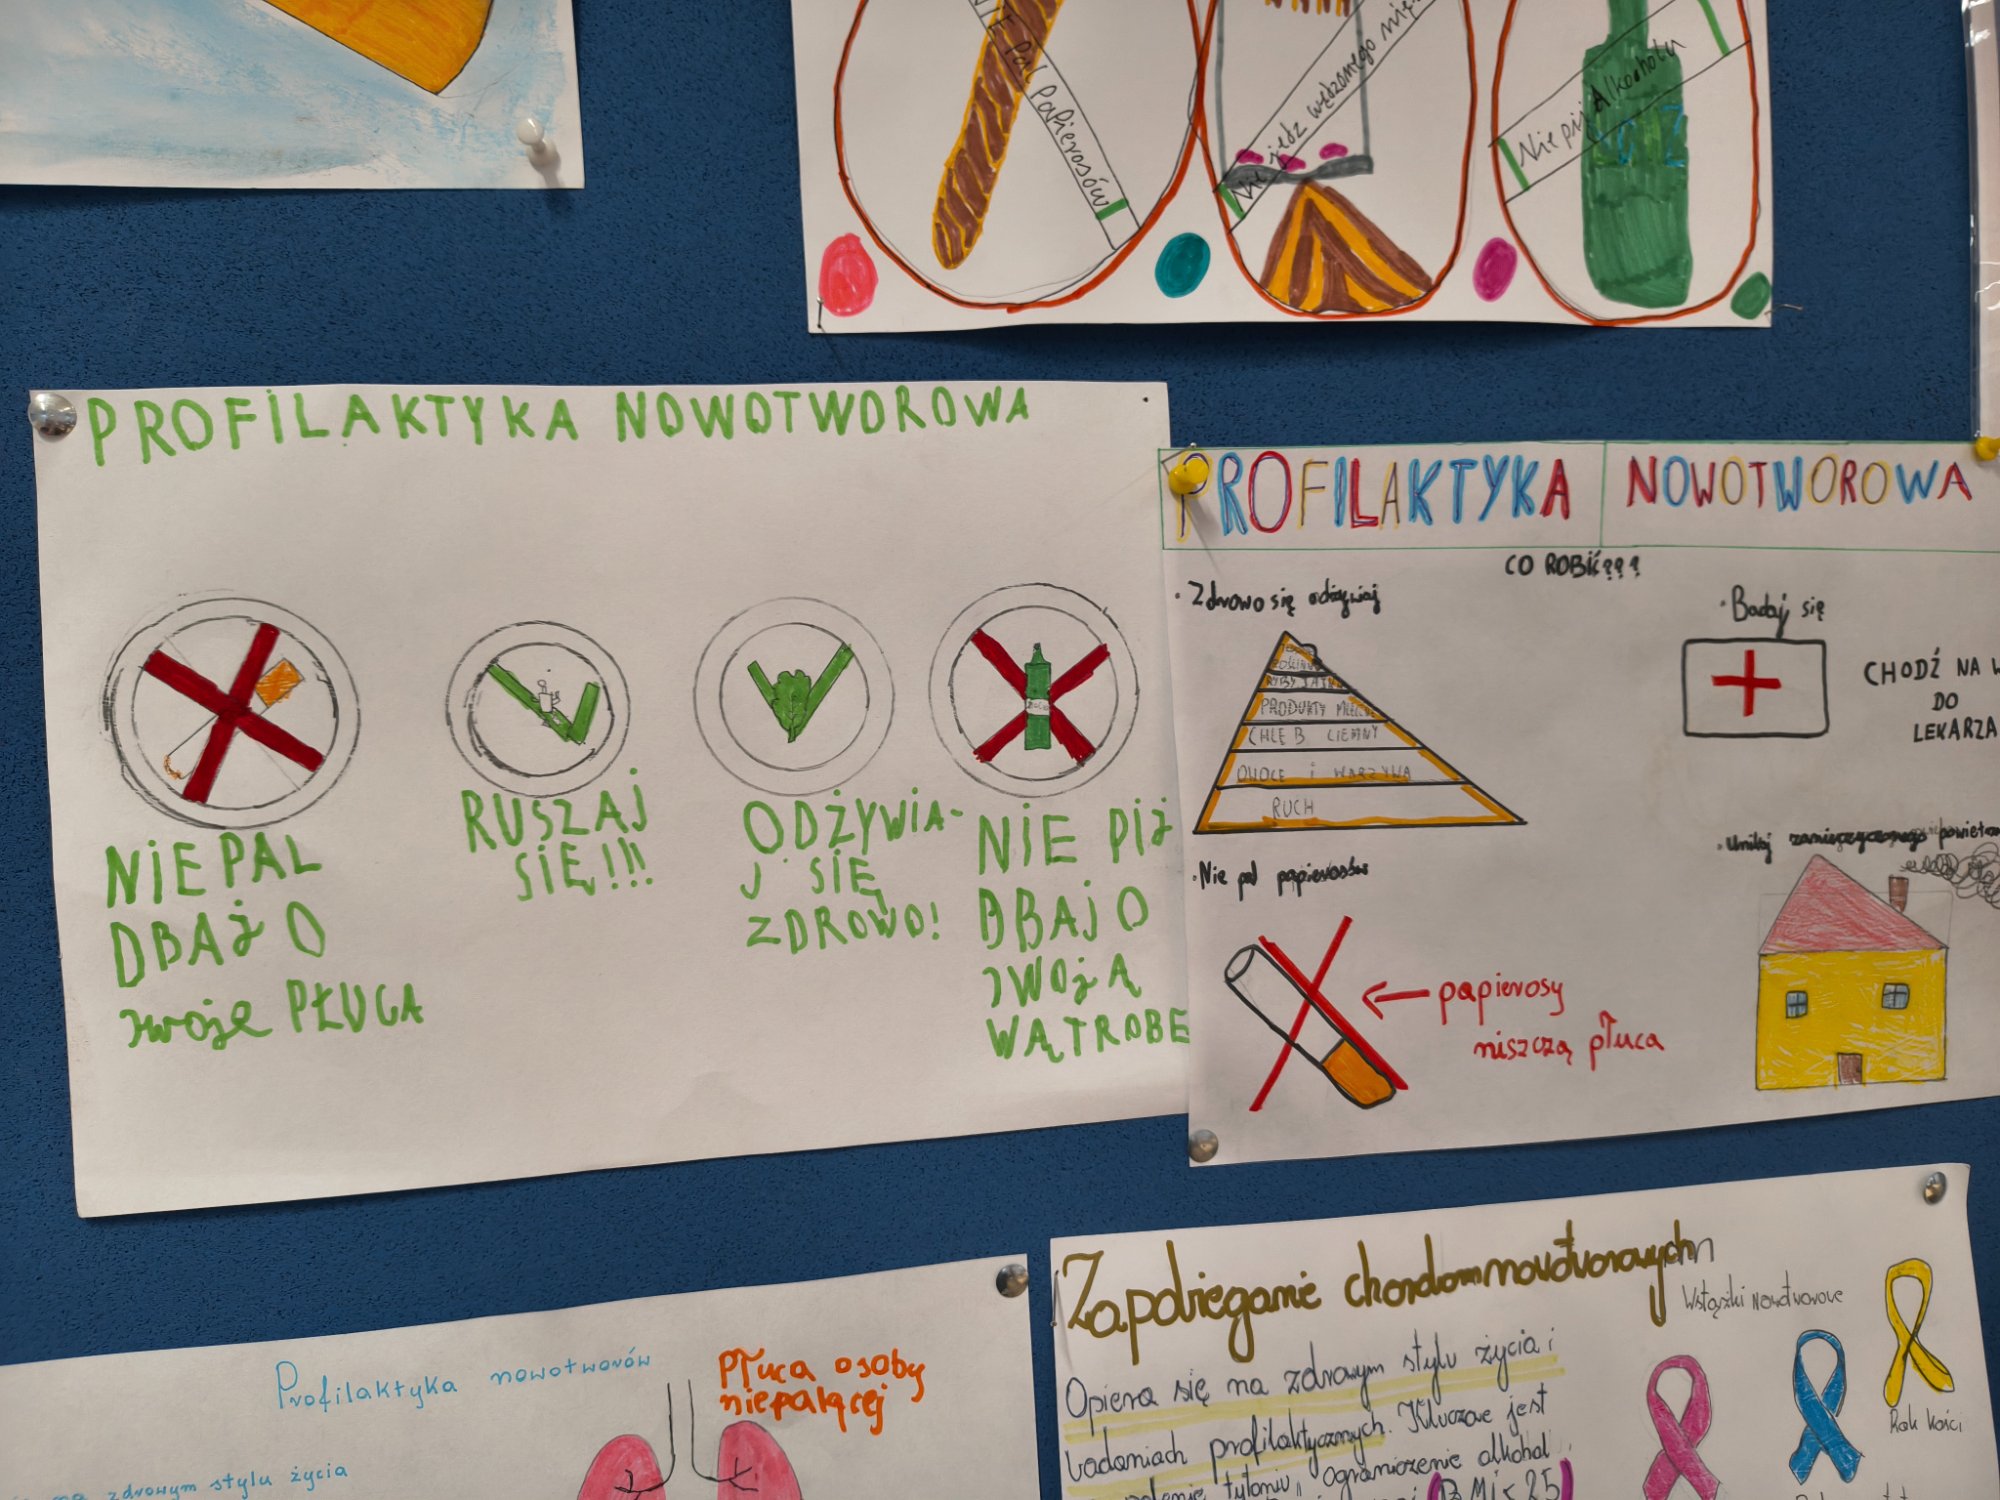 Nie Pal Papierosów
Nie jedz wędzonego
Nie pij Alkoholu
PROFILAKTYKA NOWOTWOROWA
NIE PAL
DBAJ O
twoje PŁUCA
RUSZAJ
SIĘ!!!
ODŻYWIA-
J SIĘ
ZDROWO!
NIE PIJ
DBAJ O
TWOJĄ
WĄTROBE
PROFILAKTYKA NOWOTWOROWA
CO ROBIĆ???
· Zdrowo się odżywiaj
RYBY
PRODUKTY
CHLEB CIEMNY
OWOCE i WARZYWA
RUCH
· Badaj się
CHODŹ NA
DO
LEKARZA
· Nie pal papierosów
papierosy
niszczą płuca
· Unikaj zanieczyszczonego
Profilaktyka nowotworów
Płuca osoby
niepalącej
zdrowym stylu życia
Zapobieganie chorobom nowotworowych
Wstążki Nowotworowe
Rak kości
Opiera się na zdrowym stylu życia i
badaniach profilaktycznych. Kluczowe jest
tytoniu, ograniczenie alkohol
BMI < 25